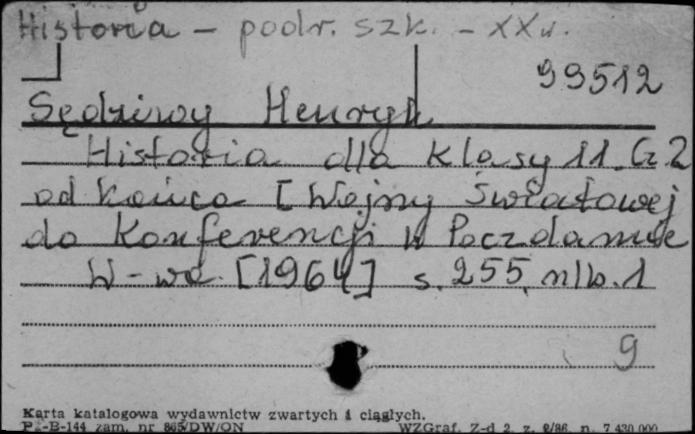 Historia - podr. szk. - XX w.
99512
Sędziwy Henryk
Historia dla klasy 11. Cz 2
od końca I Wojny Światowej
do Konferencji w Poczdamie
W-wa [1964] s. 255, nlb. 1
9
Karta katalogowa wydawnictw zwartych i ciągłych.
Pu-B-144 zam. nr 865/DW/ON WZGraf. Z-d 2, z. 9/86, n. 7 430 000